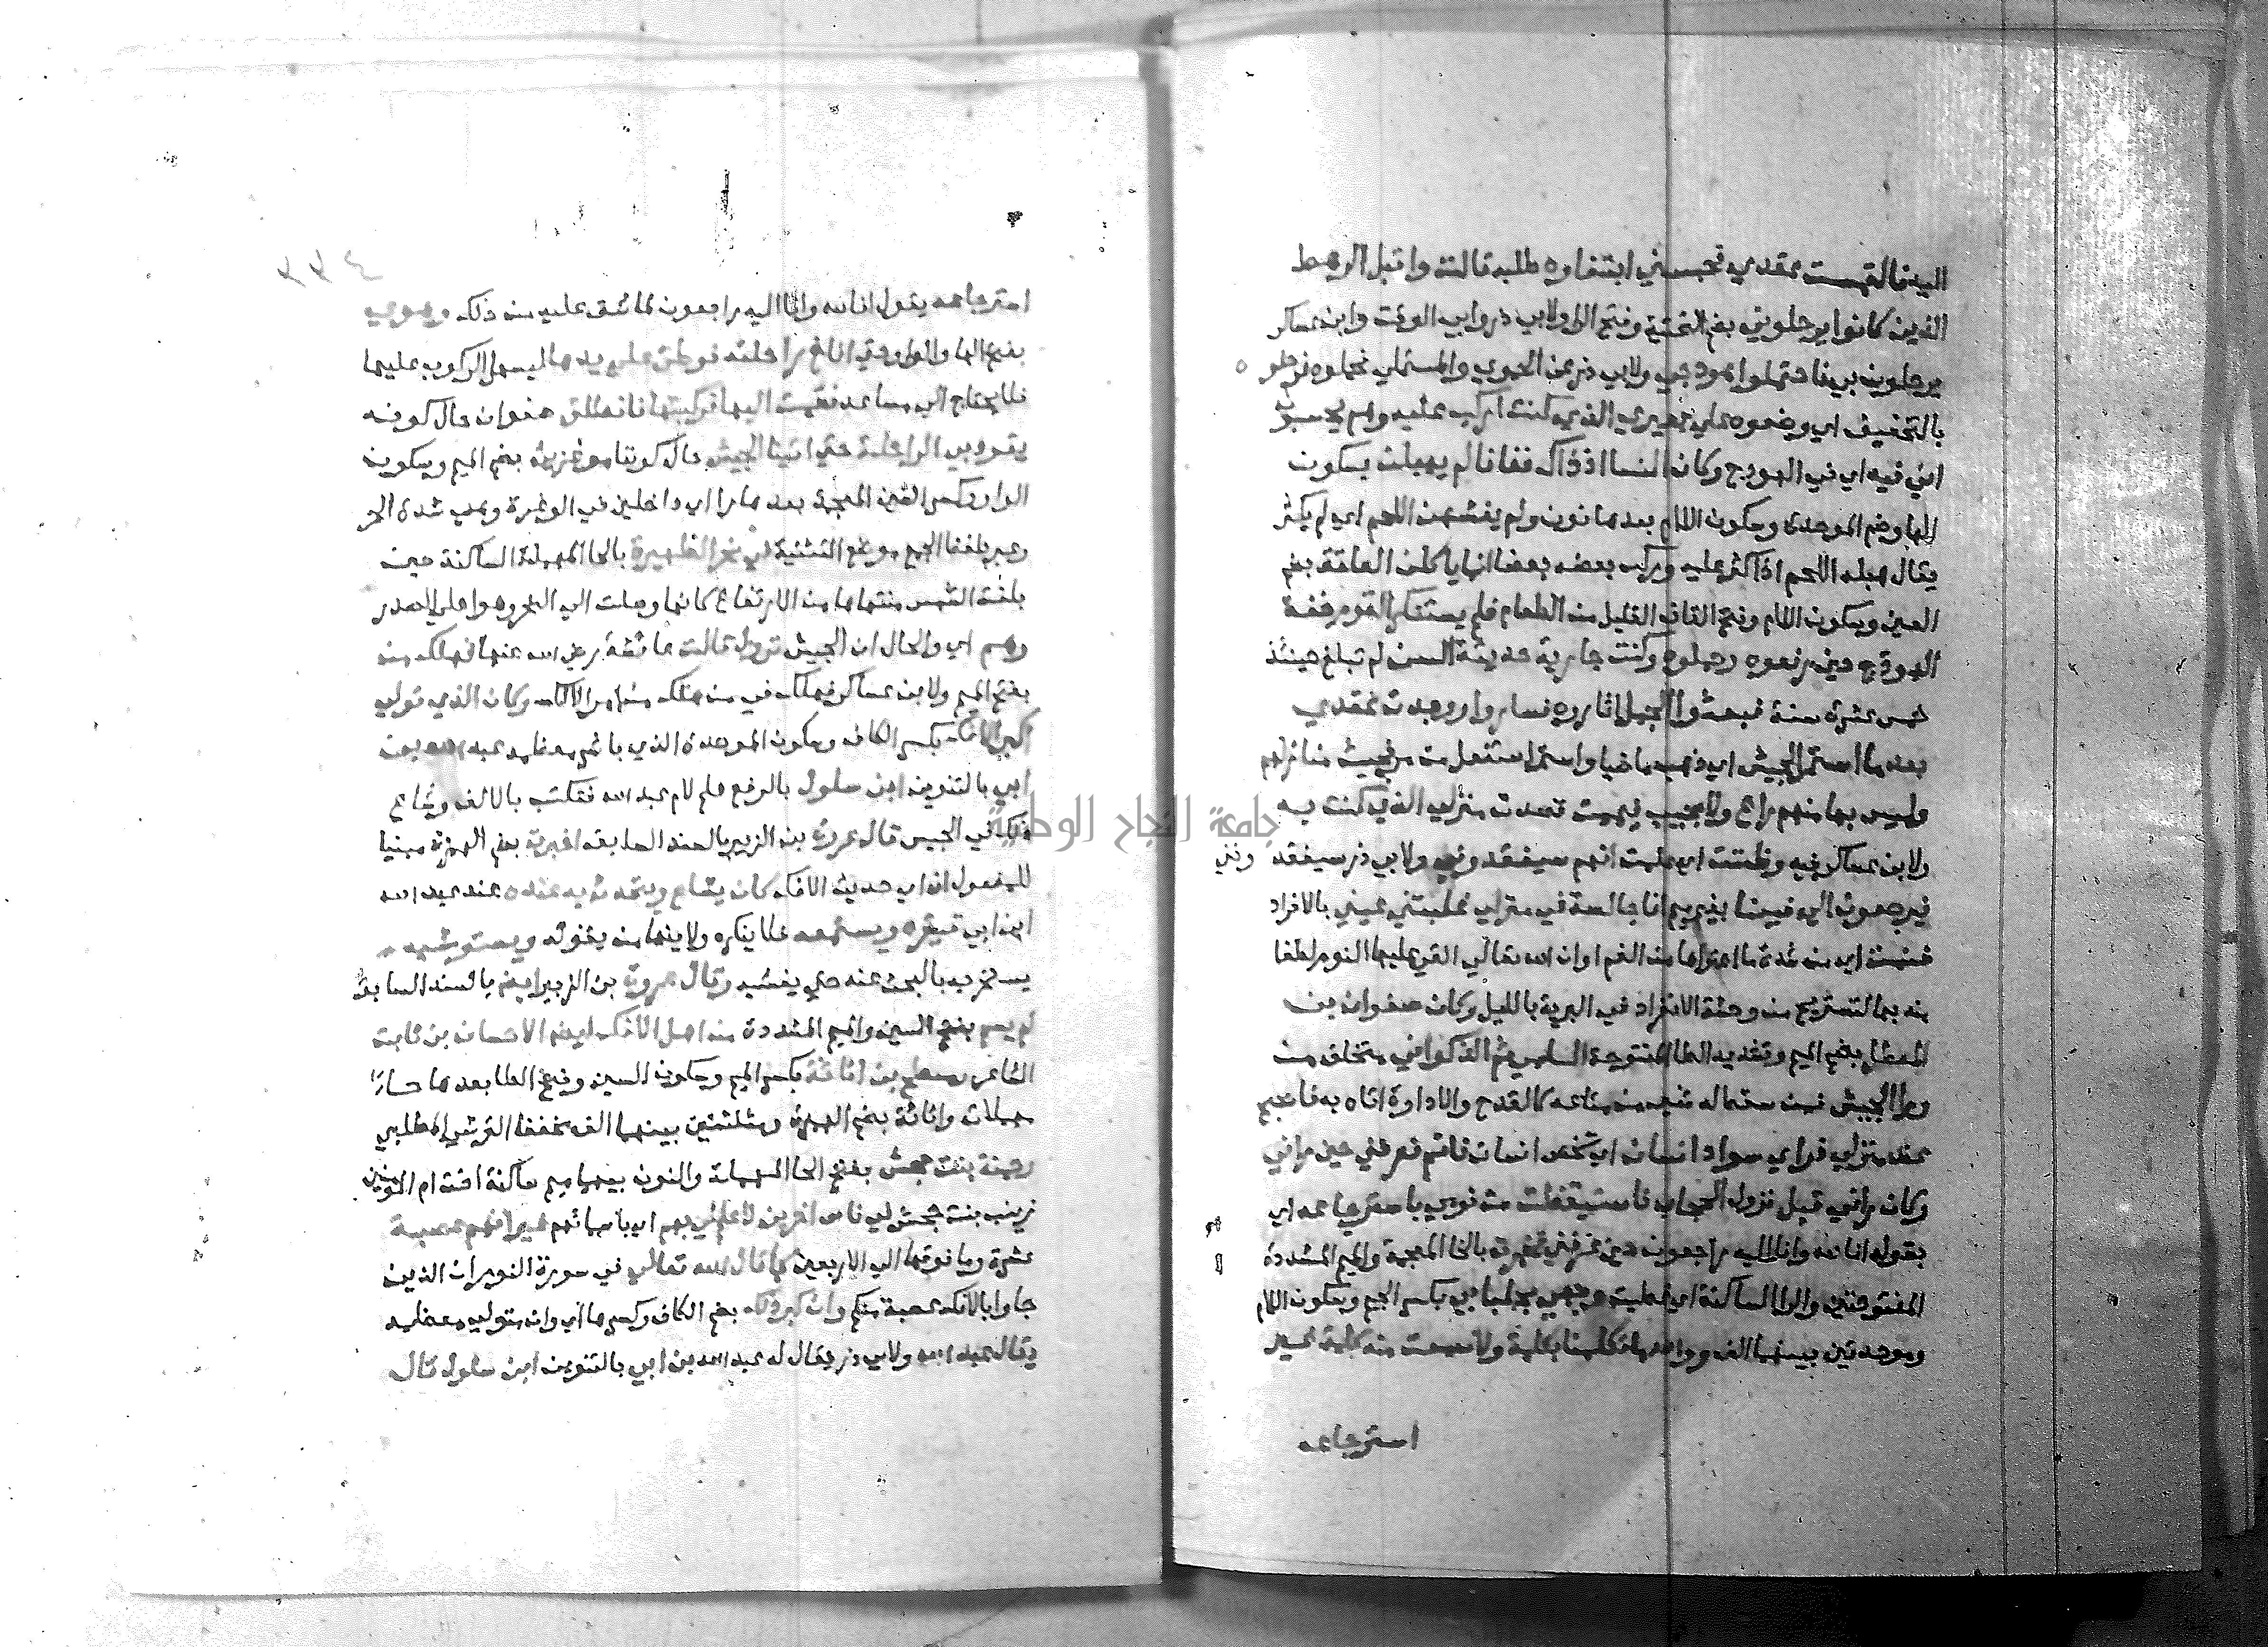 اليه فالتمست عقدي فحبسني ابتغاوه طلبه قالت واقبل الرهط
الذين كانوا يرحلوني بضم التحتية وفتح الرا ولابي ذر وابي الوقت وابن عساكر
يرحلون بي فاحتملوا هودجي ولابي ذر عن الحموي والمستملي فحملوه فرحلوه
بالتخفيف اي وضعوه علي بعيري الذي كنت اركب عليه وهم يحسبون
اني فيه اي في الهودج وكان النسا اذ ذاك خفافا لم يهبلن بسكون
الها وضم الموحدة وسكون اللام بعدها نون ولم يغشهن اللحم اي لم يكثر
يقال هبله اللحم اذا كثر عليه وركب بعضه بعضا انما ياكلن العلقة بضم
العين وسكون اللام وفتح القاف القليل من الطعام فلم يستنكر القوم خفة
الهودج حين رفعوه وحملوه وكنت جارية حديثة السن لم تبلغ حينئذ
خمس عشرة سنة فبعثوا الجمل اثاروه فساروا ووجدت عقدي
بعد ما استمر الجيش اي ذهب ماضيا واستمر استفعل من مر فجيت منازلهم
وليس بها منهم داع ولا مجيب فيممت قصدت منزلي الذي كنت به
ولابن عساكر فيه وظننت اي علمت انهم سيفقدوني ولابي ذر سيفقدونني
فيرجعون الي فبينا بغير ميم انا جالسة في منزلي غلبتني عيني بالافراد
فنمت اي من شدة ما اعتراها من الغم او ان الله تعالي القي عليها النوم لطفا
منه بها لتستريح من وحشة الانفراد في البرية بالليل وكان صفوان بن
المعطل بضم الميم وتشديد الطا المفتوحة السلمي ثم الذكواني متخلف من
ورا الجيش فمن سقط له شي من متاعه كالقدح والاداوة اتاه به فاصبح
عند منزلي فراي سواد انسان اي شخص انسان نايم فعرفني حين راني
وكان راني قبل نزول الحجاب فاستيقظت من نومي باسترجاعه اي
بقوله انا لله وانا اليه راجعون حين عرفني فخمرت بالخا المعجمة والميم المشددة
المفتوحتين والرا الساكنة اي غطيت وجهي بجلبابي بكسر الجيم وسكون اللام
وموحدتين بينهما الف ووالله ما تكلمنا بكلمة ولا سمعت منه كلمة غير
استرجاعه
استرجاعه بقول انا لله وانا اليه راجعون لما شق عليه من ذلك وهوي
بفتح الها والواو حتي اناخ راحلته فوطئ علي يدها ليسهل الركوب عليها
فلا يحتاج الي مساعد فقمت اليها فركبتها فانطلق صفوان حال كونه
يقود بي الراحلة حتي اتينا الجيش حال كوننا موغرين بضم الميم وسكون
الواو وكسر الغين المعجمة بعدها را اي داخلين في الوغرة وهي شدة الحر
وعبر بلفظ الجمع موضع التثنية في نحر الظهيرة بالحا المهملة الساكنة حين
بلغت الشمس منتهاها من الارتفاع كانها وصلت الي النحر وهو اعلي الصدر
وهم اي والحال ان الجيش نزول قالت عائشة رضي الله عنها فهلك من
بفتح الميم ولابن عساكر فهلك في من هلك من امر الافك وكان الذي تولي
كبر الافك بكسر الكاف وسكون الموحدة الذي باشر معظمه عبد الله بن
ابي بالتنوين ابن سلول بالرفع علم لام عبد الله فتكتب بالالف وشاع
ذلك في الجيش قال عروة بن الزبير بالسند السابق اخبرت بضم الهمزة مبنيا
للمفعول انه اي حديث الافك كان يشاع ويتحدث به عنده عند عبد الله
ابن ابي فيقره ويستمعه فلا ينكره ولا ينها من يقوله ويستوشيه
يستخرجه بالبحث عنه حتي يفشيه وقال عروة بن الزبير ايضا بالسند السابق
لم يسم بفتح السين والميم المشددة من اهل الافك ايضم الا حسان بن ثابت
الشاعر ومسطح بن اثاثة بكسر الميم وسكون السين وفتح الطا بعدها حا
مهملات واثاثة بضم الهمزة ومثلثتين بينهما الف مخففا القرشي المطلبي
وحمنة بنت جحش بفتح الحا المهملة والنون بينهما ميم ساكنة اخت ام المومنين
زينب بنت جحش في ناس اخرين لا علم لي بهم اي باسمائهم غير انهم عصبة
عشرة وما فوقها الي الاربعين كما قال الله تعالي في سورة النور ان الذين
جاوا بالافك عصبة منكم وان كبر ذلك بضم الكاف وكسرها اي وان متولي معظمه
يقال عبد الله ولابي ذر يقال له عبد الله بن ابي بالتنوين ابن سلول قال
جامعة النجاح الوطنية